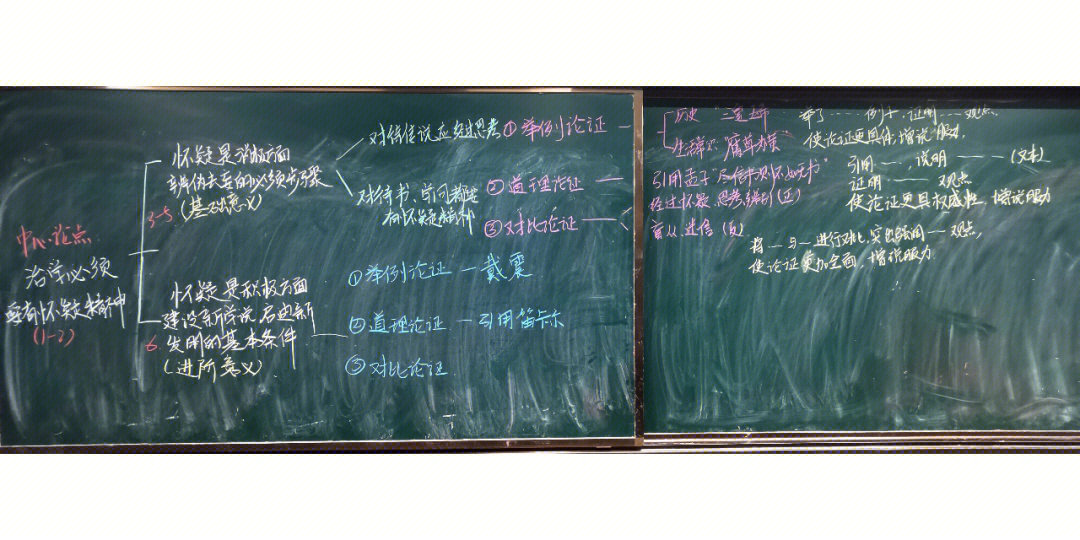 中心论点
治学必须
要有怀疑精神
(1-2)
3-5
怀疑是消极方面
辨伪去妄的必须步骤
(基础意义)
对待传说应经过思考
对待书、学问都要
有怀疑精神
①举例论证
②道理论证
③对比论证
历史 "三皇五帝"
生活中 "腐草为萤"
引用孟子"尽信书则不如无书"
经过怀疑、思考、辨别(正)
盲从、迷信(反)
举了……例子,证明……观点,
使论证更具体,增说服力。
引用……说明————(文本)
证明————观点
使论证更具权威性,增说服力
将——与——进行对比,突出强调——观点,
使论证更加全面,增说服力
6.
怀疑是积极方面
建设新学说、启迪新
发明的基本条件
(进阶意义)
①举例论证—戴震
②道理论证—引用笛卡尔
③对比论证